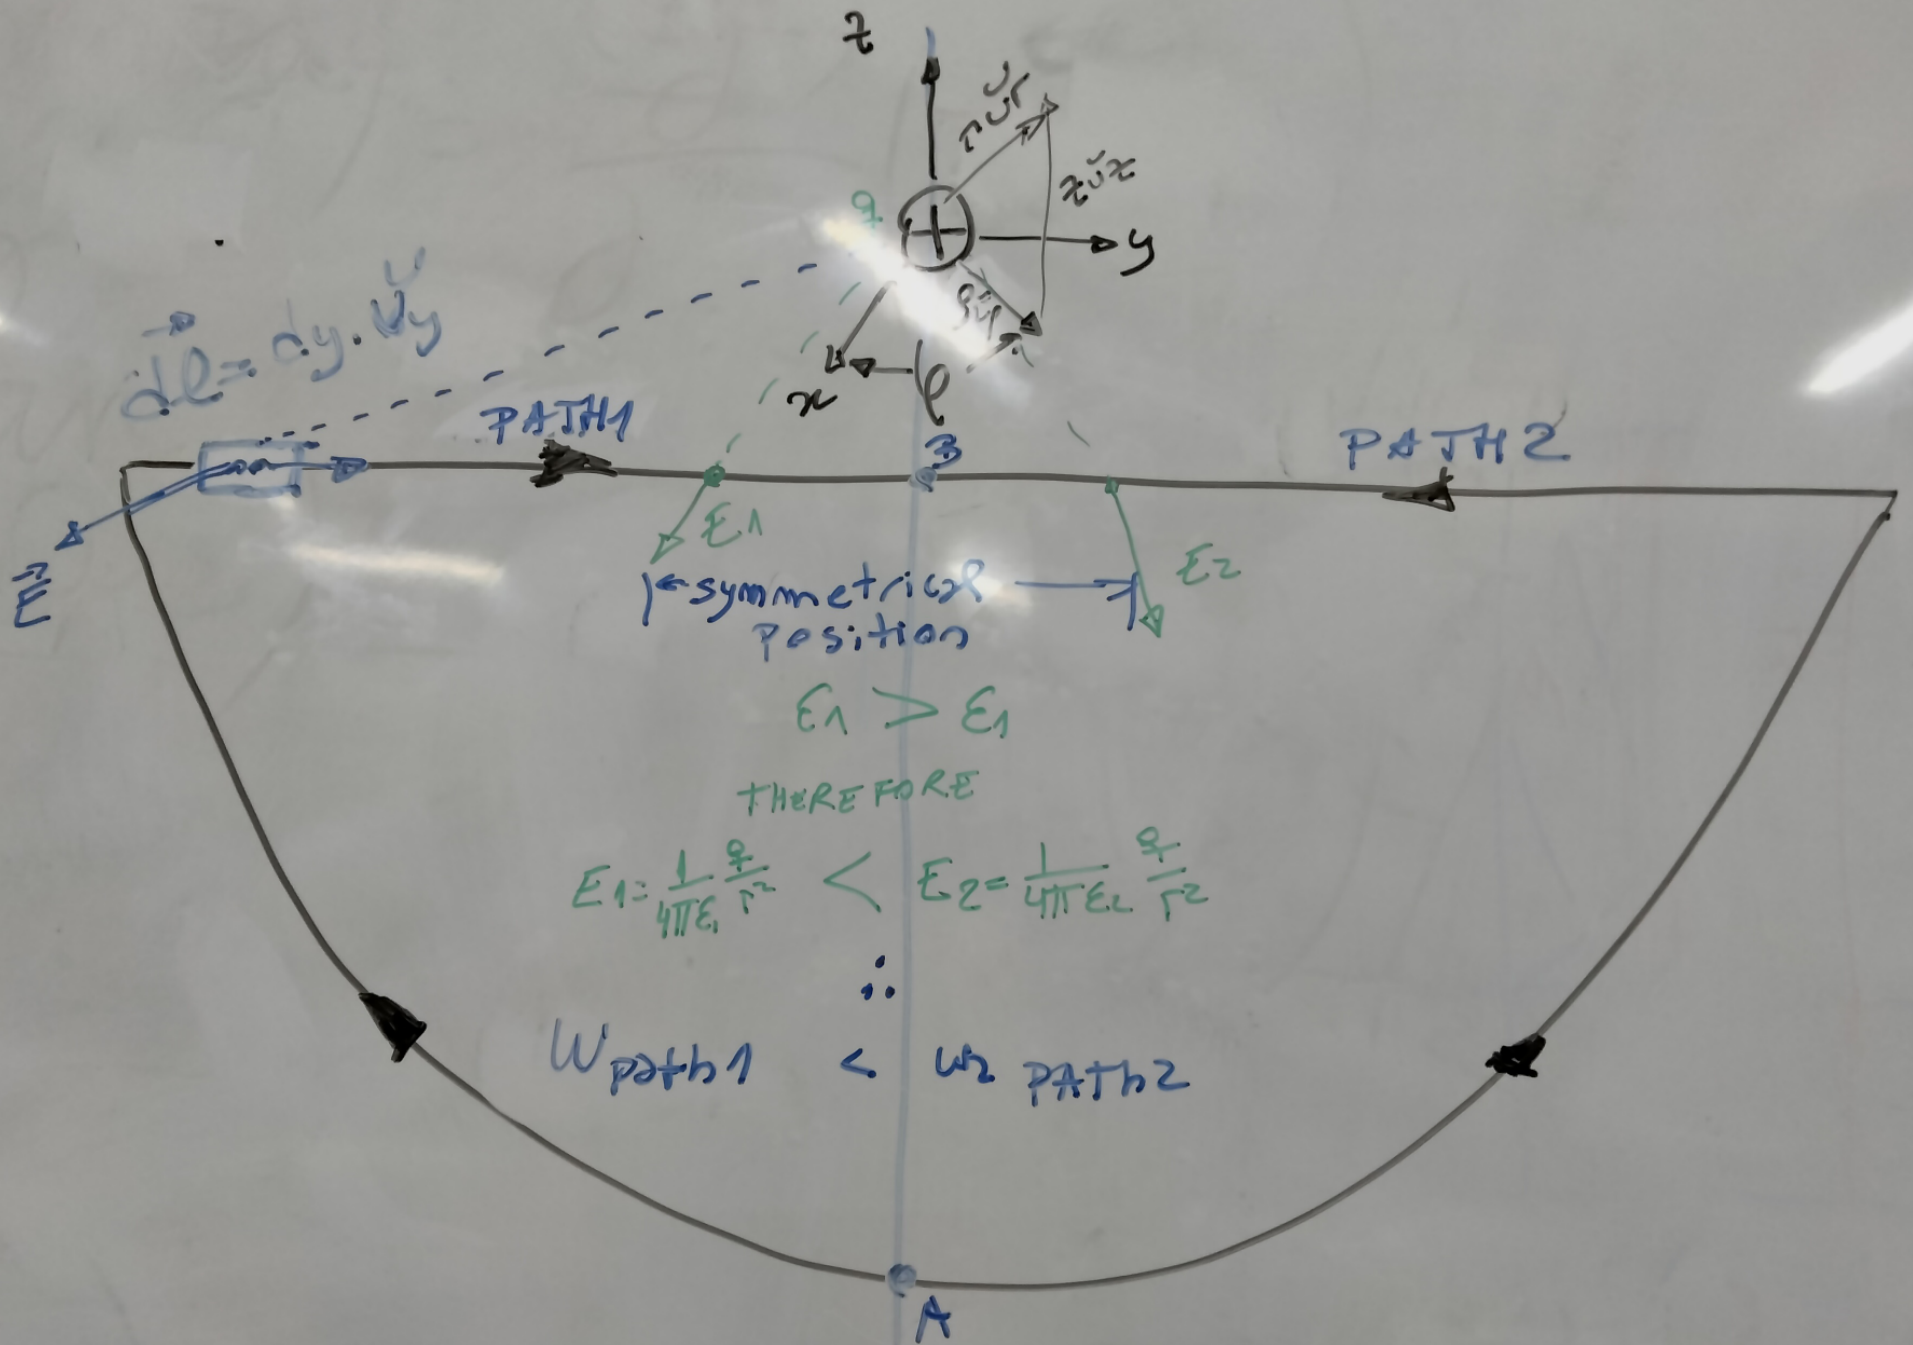 z
r ǔr
zǔz
q
y
ρǔρ
x
φ
dl = dy. Ǔy
PATH1
B
PATH2
E
E1
E2
symmetrical
position
ε1 > ε1
THEREFORE
E1= 1/4πε1 q/r² < E2= 1/4πε2 q/r²
∴
W path1 < W2 PATh2
A